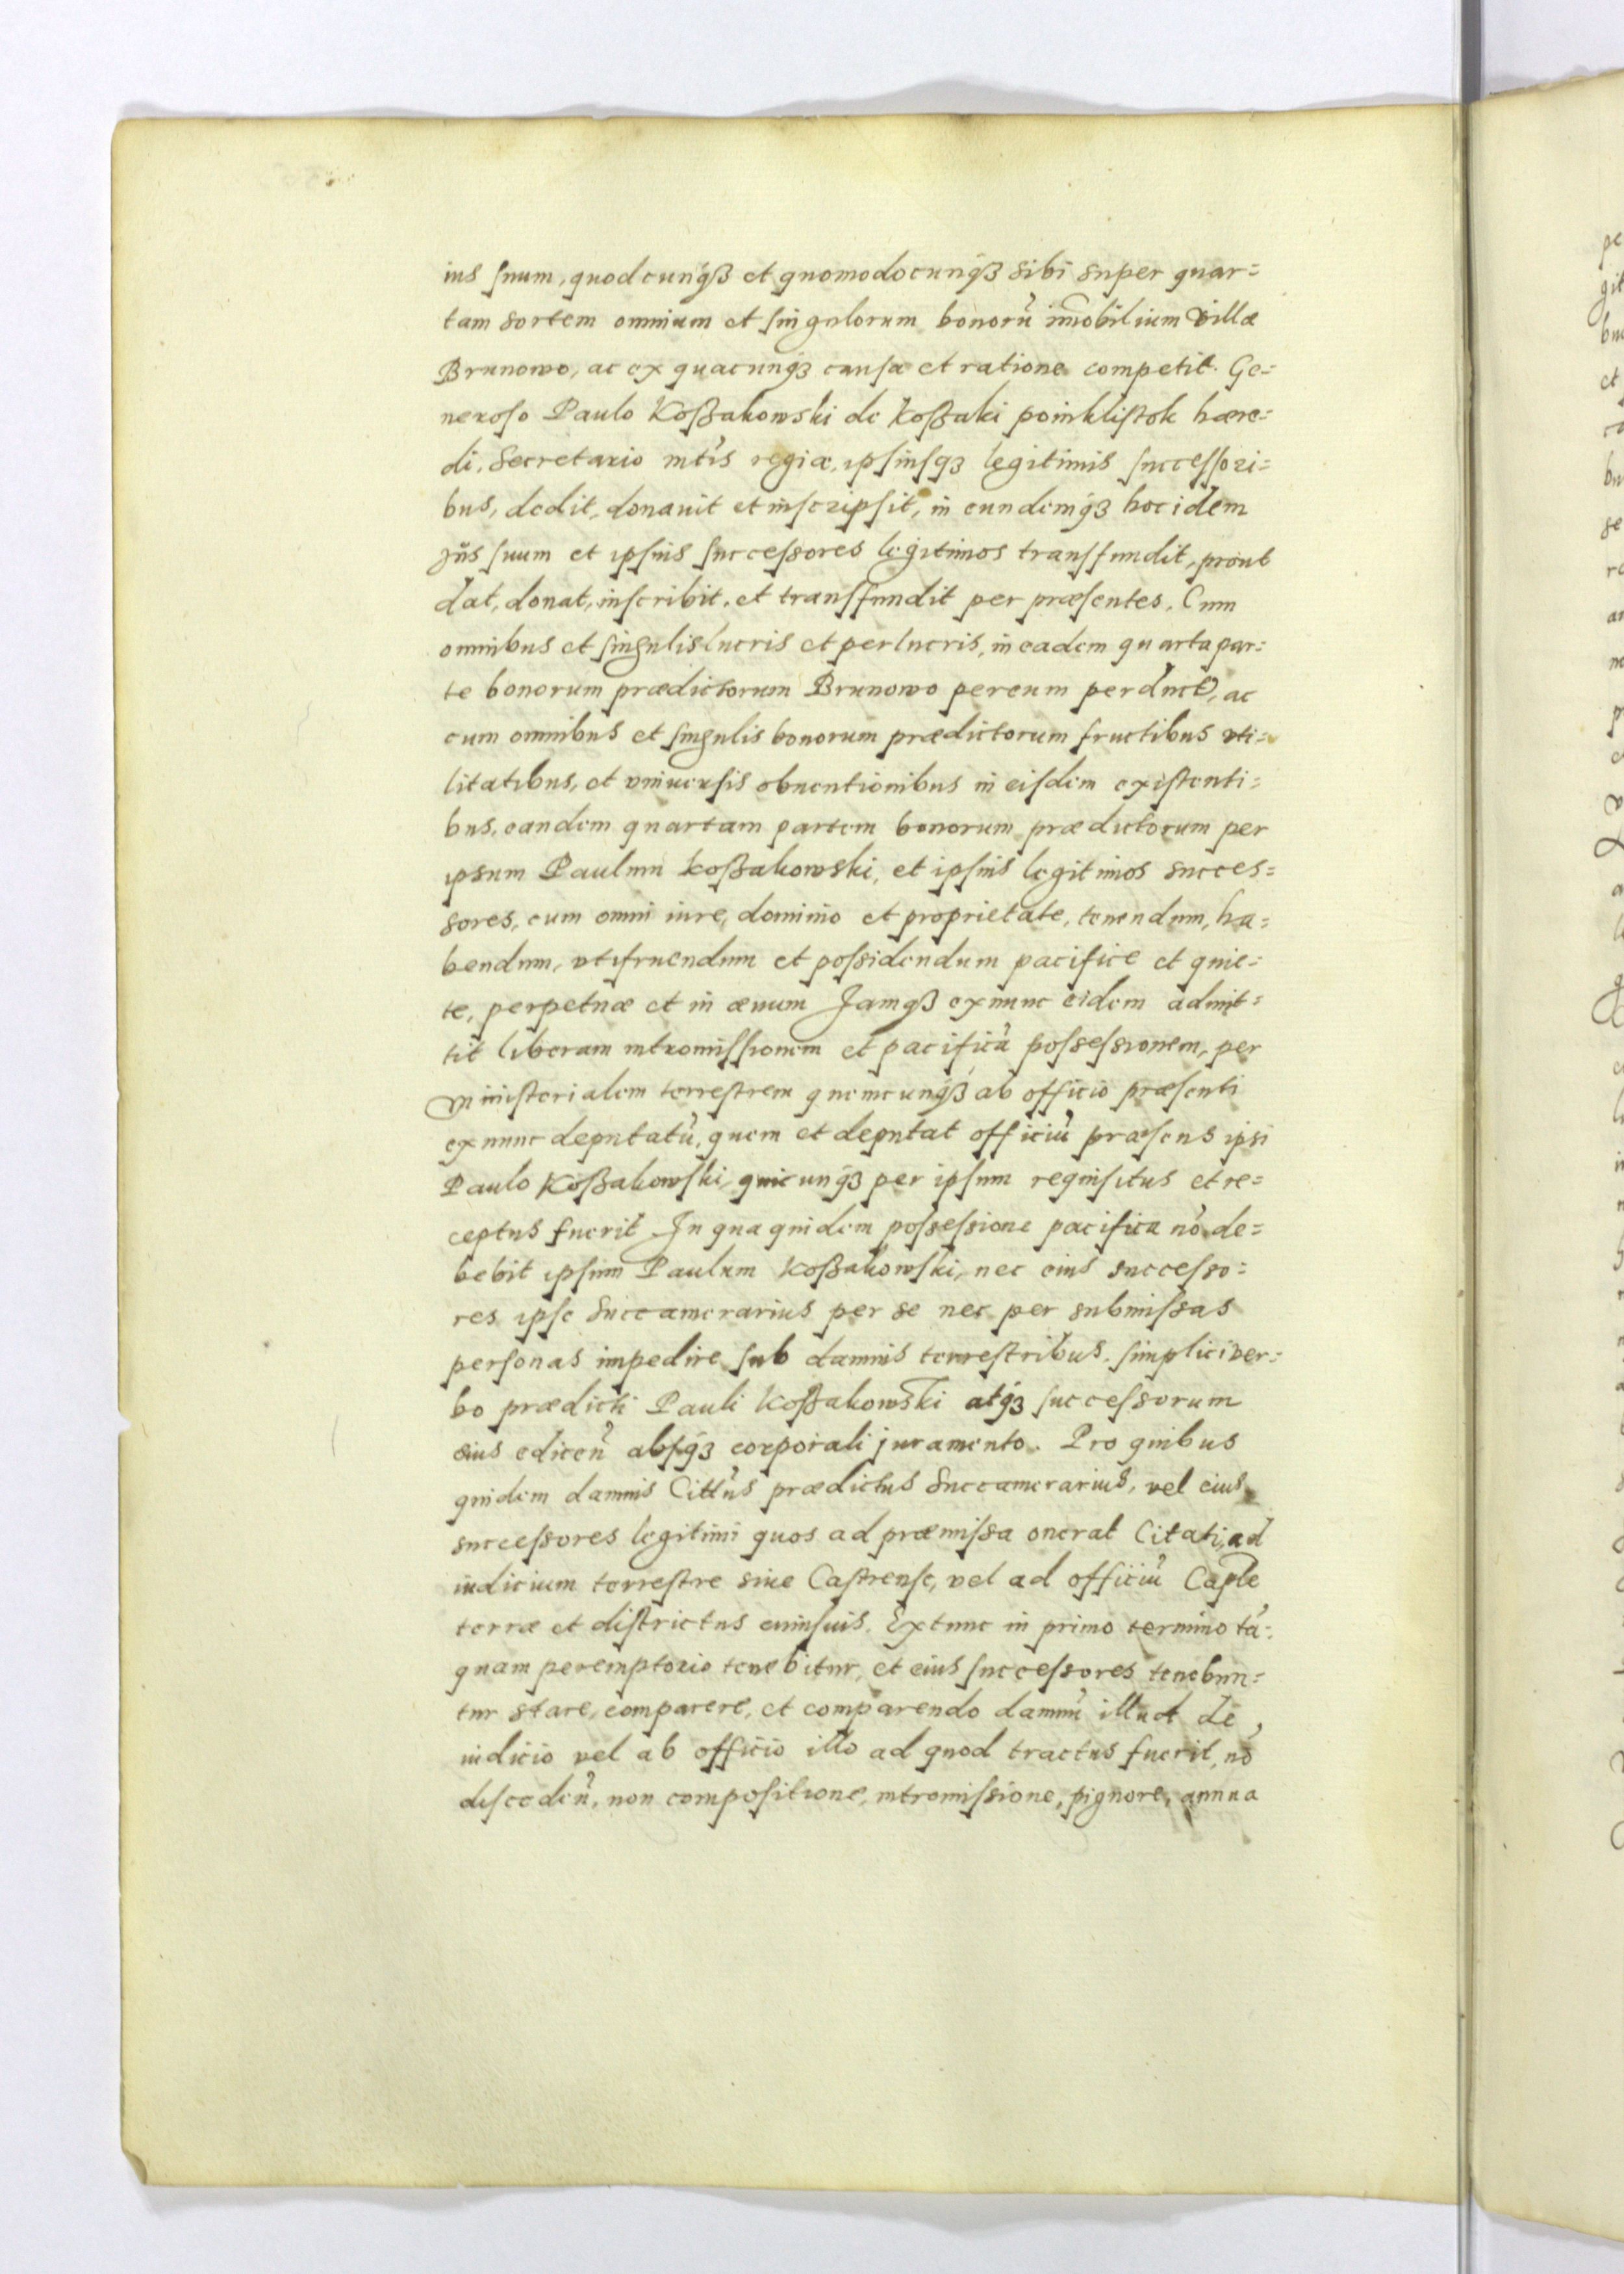 ius suum, quodcunqꝫ et quomodocunqꝫ sibi super quar=
tam sortem omnium et singulorum bonorũ im̃obilium villæ
Brunowo, ac ex quacunqꝫ causa et ratione competit. Ge=
neroso Paulo Koßakowski de Koßaki poinklistok hære=
di, Secretario mt̃is regiæ, ipsiusqꝫ legitimis successori=
bus, dedit, donauit et inscripsit, in eundemqꝫ hoc idem
Jus suum et ipsius successores legitimos transfundit, prout
dat, donat, inscribit, et transfundit per præsentes. Cum
omnibus et singulis lucris et perlucris, in eadem quarta par=
te bonorum prædictorum Brunowo per eum perduct, ac
cum omnibus et singulis bonorum prædictorum fructibus vti=
litatibus, et vniuersis obuentionibus in eisdem existenti=
bus, eandem quartam partem bonorum prædictorum per
ipsum Paulum Koßakowski, et ipsius legitimos succes=
sores, cum omni iure, dominio et proprietate, tenendum, ha=
bendum, vtifruendum et possidendum pacifice et quie=
te, perpetuæ et in æuum Jamqꝫ ex nunc eidem admit=
tit liberam intromissionem et pacificã possessionem, per
ministerialem terrestrem quemcunqꝫ ab officio præsenti
ex nunc deputatũ, quem et deputat officiũ præsens ipsi
Paulo Koßakowski, quicunqꝫ per ipsum requisitus et re=
ceptus fuerit In qua quidem possessione pacifica nõ de=
bebit ipsum Paulum Koßakowski, nec eius successo=
res ipse Succamerarius per se nec per submissas
personas impedire sub damnis terrestribus, simplici ver=
bo prædicti Pauli Koßakowski atqꝫ successorum
eius edicen̄ absqꝫ corporali juramento. Pro quibus
quidem damnis Citt̃us prædictus Succamerarius, vel eius
successores legitimi quos ad præmissa onerat Citati, ad
iudicium terrestre siue Castrense, vel ad officiũ Caple
terræ et districtus cuiusuis. Extunc in primo termino tã=
quam peremptorio tenebitur, et eius successores tenebun=
tur stare, comparere, et comparendo damnũ illud de
iudicio vel ab officio illo ad quod tractus fuerit, nõ
disceden̄, non compositione, intromissione, pignore, annua